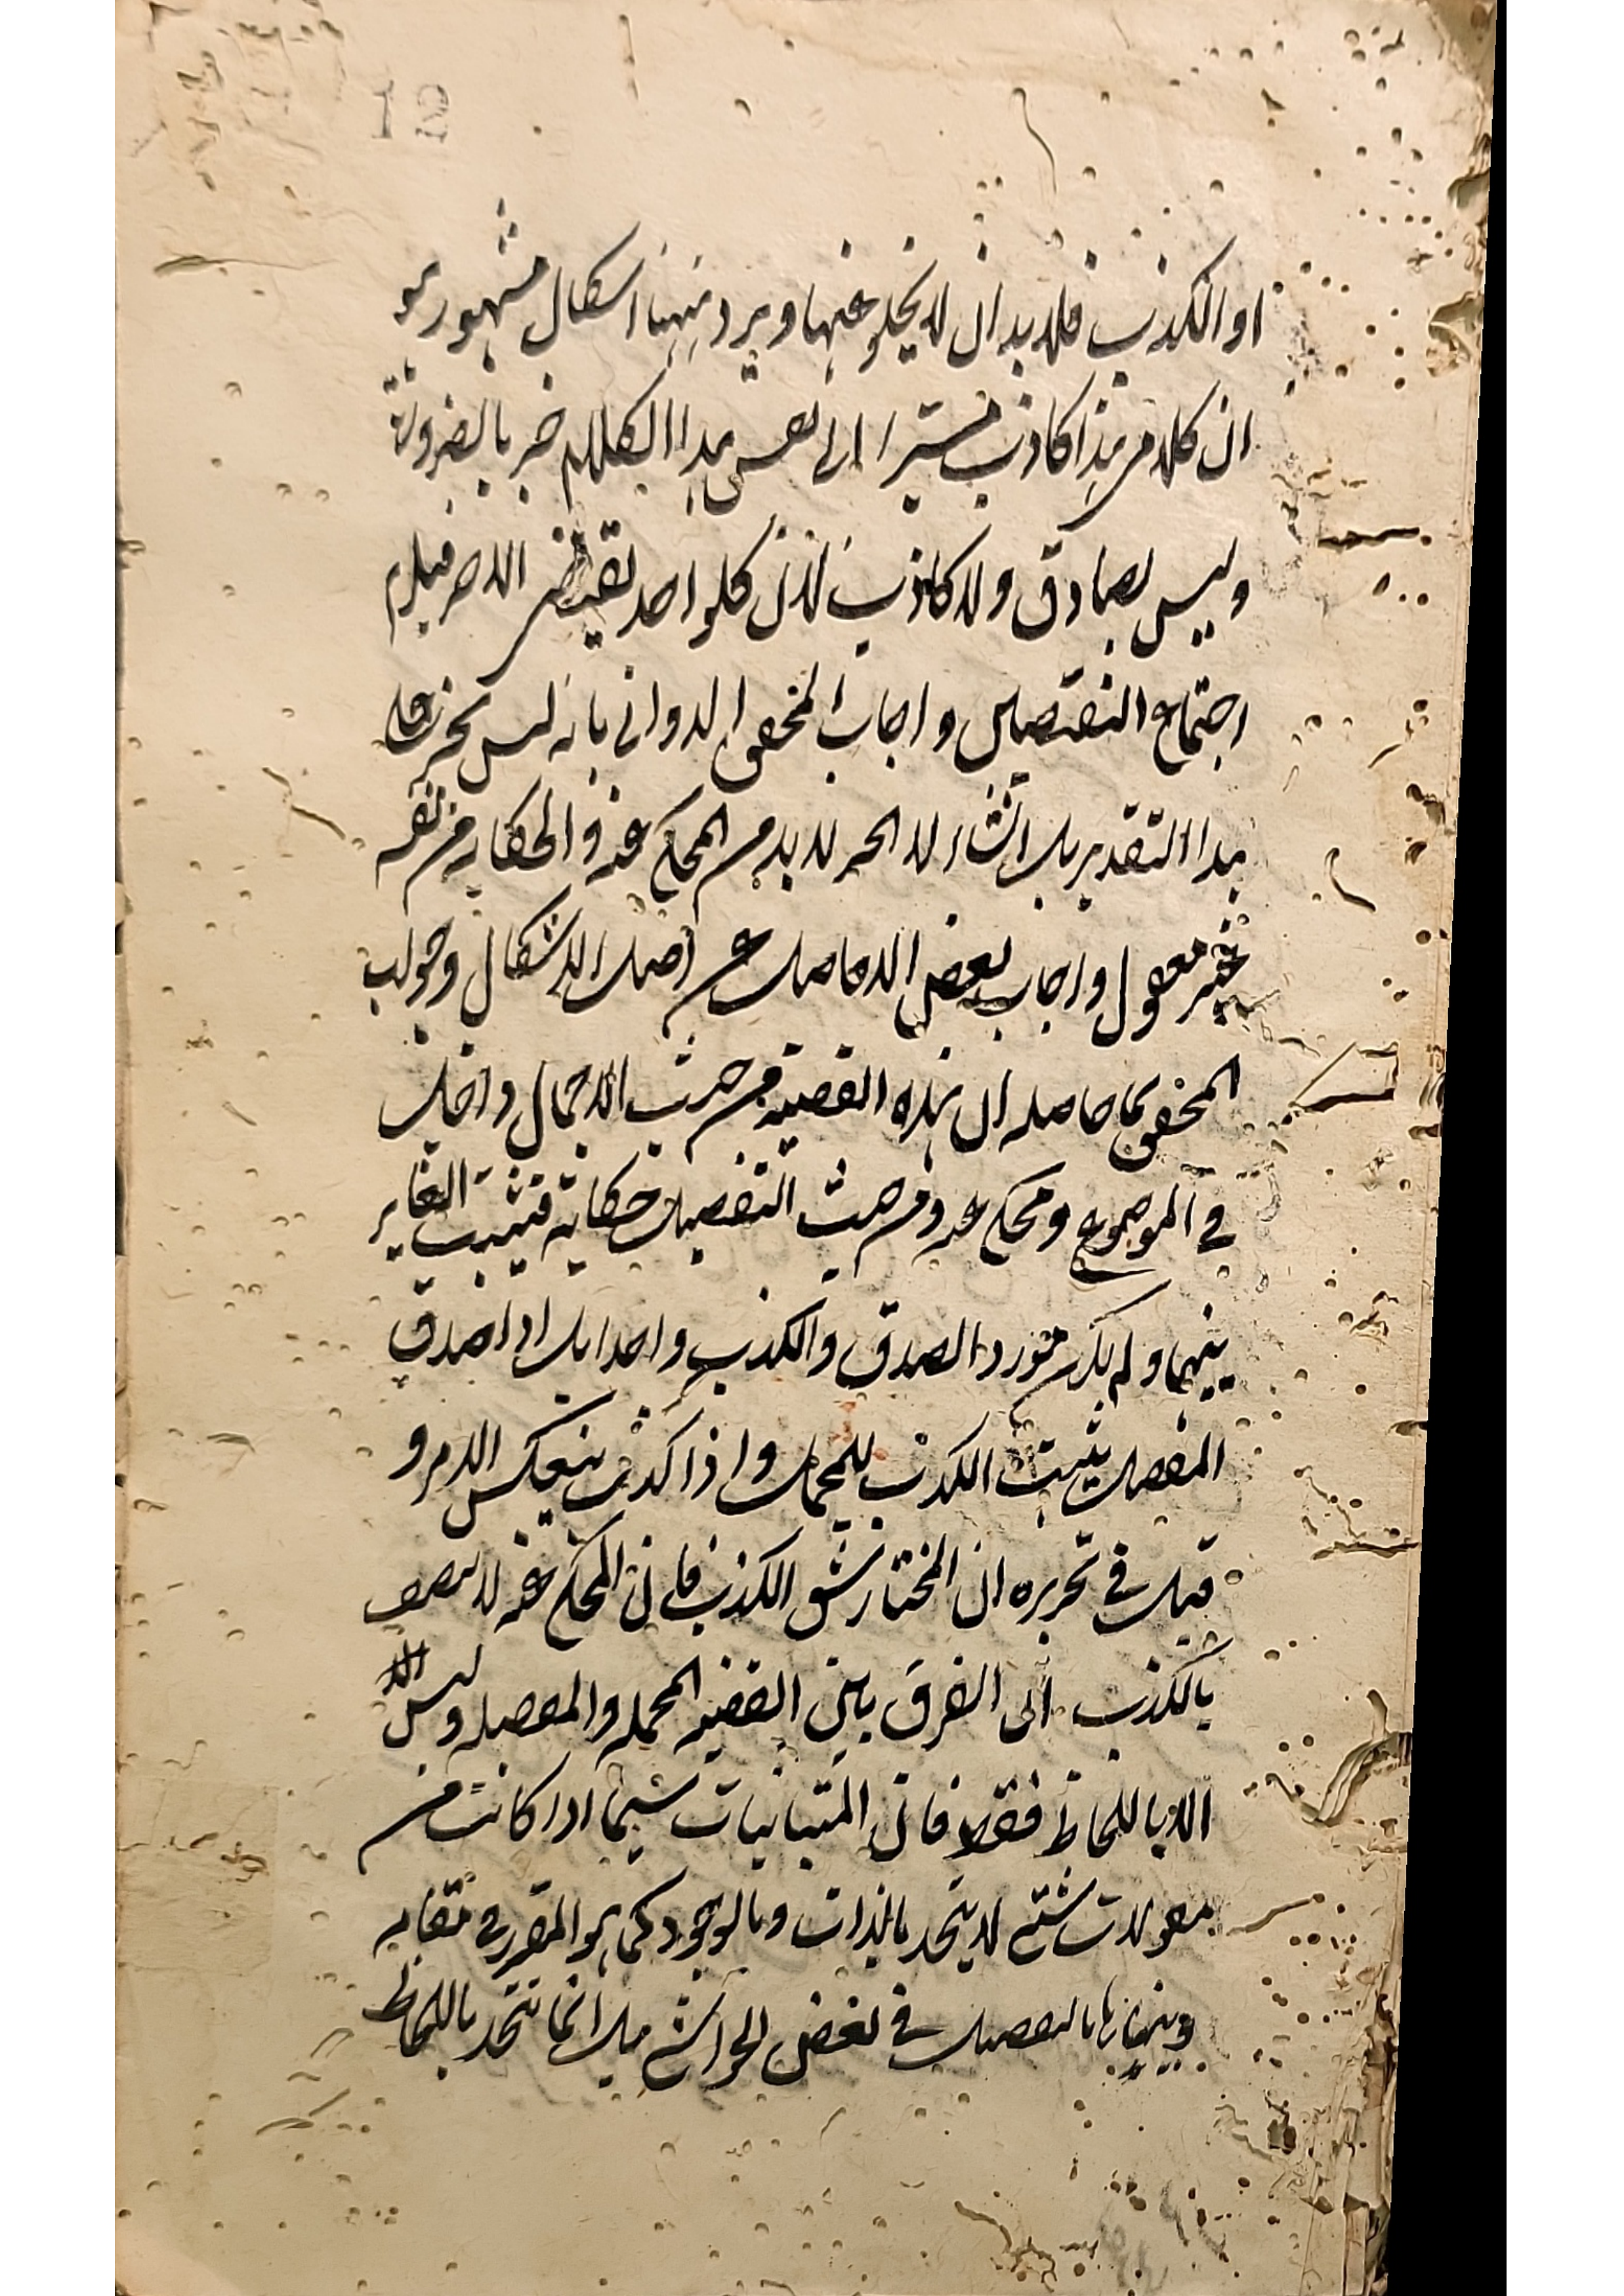 12
او الكذب فلا بد ان لا يخلو عنها ويرد ههنا اشكال مشهور هو
ان كلامي هذا كاذب مشيرا الى نفس هذا الكلام خبر بالضرورة
وليس بصادق ولا كاذب لان كلواحد نقيض الاخر فيلزم
اجتماع النقيضين واجاب المحقق الدواني بانه ليس بخبر على
هذا التقدير بل انشاء لان الخبر لا بد من المحكي عنه والحكاية من نفسه
غير معقول واجاب بعض الافاضل عن اصل الاشكال وجواب
المحقق بما حاصله ان هذه القضية من حيث الاجمال داخل
في الموضوع ومحكي عنه ومن حيث التفصيل حكاية فيثبت التغاير
بينهما ولم يكن مورد الصدق والكذب واحدا بل اذا صدق
المفصل يثبت الكذب للمجمل واذا كذب ينعكس الامر و
قيل في تحريره ان المختار شق الكذب فان المحكي عنه لا يتصف
بالكذب الى الفرق بين القضية المجملة والمفصلة وليس
الا باللحاظ فقط فان المتباينات سيما اذا كانت من
مقولات شتى لا يتحد بالذات وبالوجود كما هو المقرر في مقامه
وبيناها بالتفصيل في بعض الحواشي بل انما تتحد باللحاظ